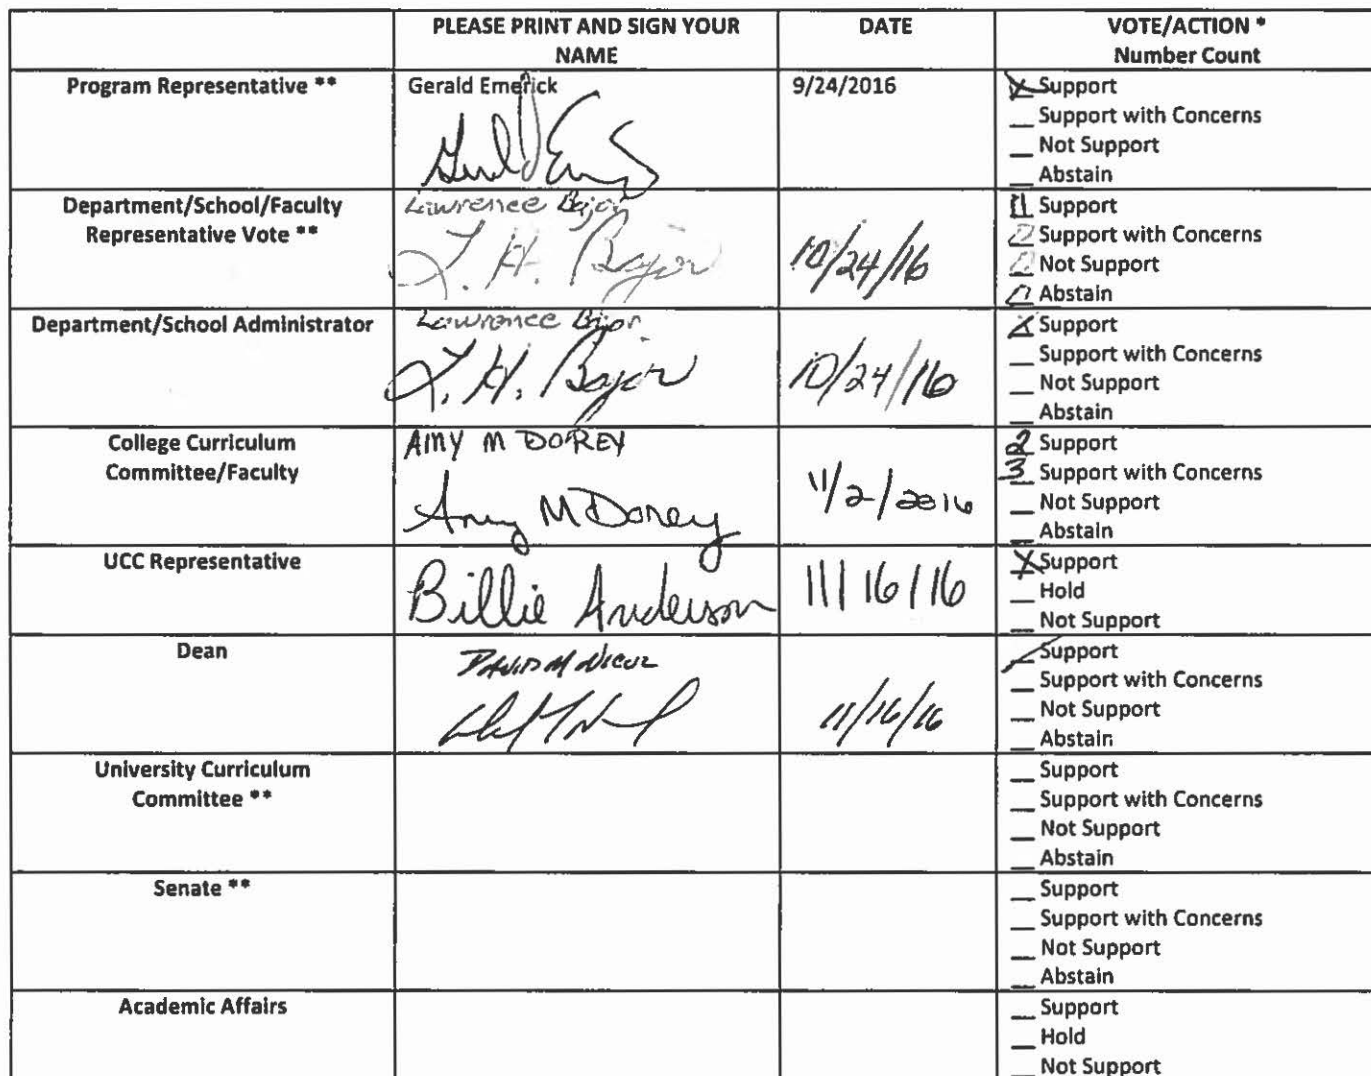 PLEASE PRINT AND SIGN YOUR NAME
DATE
VOTE/ACTION *
Number Count
Program Representative **
Gerald Emerick
9/24/2016
X Support
__ Support with Concerns
__ Not Support
__ Abstain
Department/School/Faculty
Representative Vote **
Lawrence Bajor
L. H. Bajor
10/24/16
11 Support
0 Support with Concerns
0 Not Support
0 Abstain
Department/School Administrator
Lawrence Bajor
L. H. Bajor
10/24/16
X Support
__ Support with Concerns
__ Not Support
__ Abstain
College Curriculum
Committee/Faculty
AMY M DOREY
Amy M Dorey
11/2/2016
2 Support
3 Support with Concerns
__ Not Support
__ Abstain
UCC Representative
Billie Anderson
11/16/16
X Support
__ Hold
__ Not Support
Dean
DAVID M NICOL
11/16/16
__ Support
__ Support with Concerns
__ Not Support
__ Abstain
University Curriculum
Committee **
__ Support
__ Support with Concerns
__ Not Support
__ Abstain
Senate **
__ Support
__ Support with Concerns
__ Not Support
__ Abstain
Academic Affairs
__ Support
__ Hold
__ Not Support